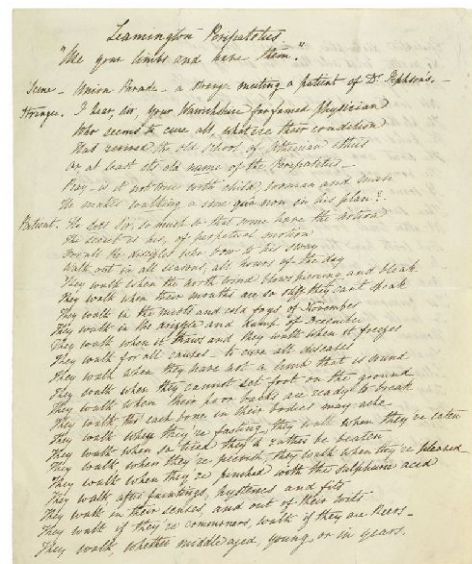 Leamington Peripatetics.
"Use your limbs and have them."
Scene - Union Parade - a stranger meeting a patient of Dr. Jephson's.
Stranger. I hear, sir, your Warwickshire far famed physician
Who seems to cure all, whate'er their condition
Has revived the old school of Athenian
or at least its old name of the Peripatetic
Pray - is it not true with child, woman and man
He makes walking a sine qua non in his plan?
Patient. He does Sir, so much so that some have the notion
The secret is his, of perpetual motion
For all the disciples who bow to his sway
Walk out in all seasons, all hours of the day
They walk when the north wind blows piercing and bleak
They walk when their mouths are so stiff they cant speak
They walk in the mists and cold fogs of November
They walk in the drizzle and of December
They walk when it thaws and they walk when it freezes
They walk for all causes - to cure all diseases
They walk when they have not a limb that is sound
They walk when they cannot set foot on the ground
They walk when their poor backs are ready to break
They walk tho' each bone in their bodies may ache
They walk when they're fasting, they walk when they've eaten
They walk when so tired they'd rather be beaten
They walk when they're they walk when they're pleased -
They walk when they're pinched with the sulphuric acid
They walk after faintings, hysterics and fits
They walk in their senses, and out of their wits
They walk if they're commoners, walk if they are Peers -
They walk, whether middle aged, young, or in years.